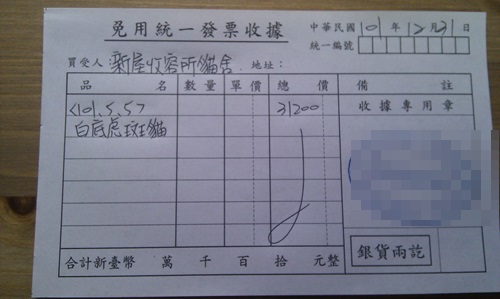 免用統一發票收據
中華民國101年12月31日
統一編號
買受人 新屋收容所貓舍 地址：
品名 數量 單價 總價 備註
<101.5.5> 31200 收據專用章
白底虎斑貓
銀貨兩訖
合計新臺幣 萬 千 百 拾 元整